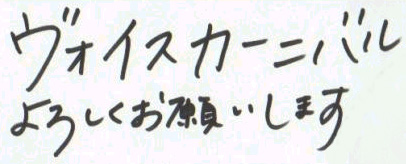 ヴォイスカーニバル
よろしくお願いします